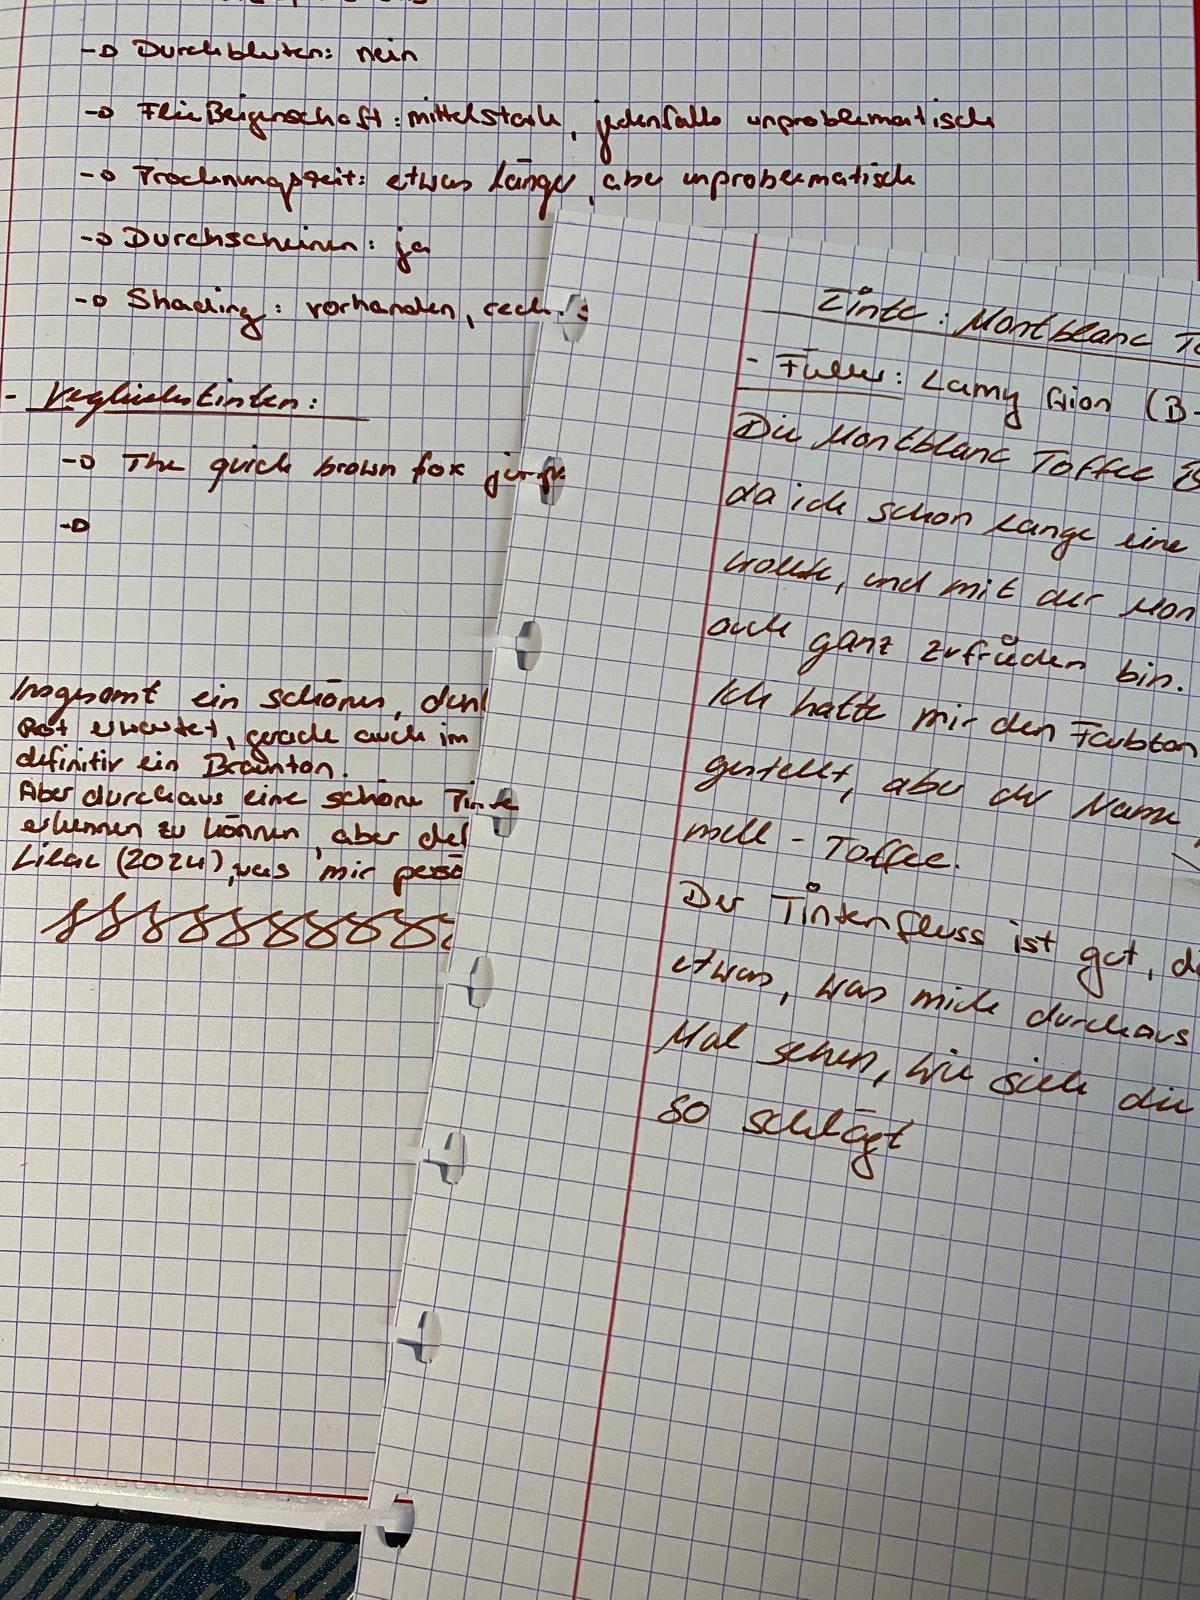 -> Durchbluten: nein
-> Fließeigenschaft: mittelstark, jedenfalls unproblematisch
-> Trocknungszeit: etwas länger, aber unproblematisch
-> Durchscheinen: ja
-> Shading: vorhanden,
- Vergleichstinten:
-> The quick brown fox
->
Insgesamt ein schönes,
Rot erwartet, gerade auch im
definitiv ein Braunton.
Aber durchaus eine schöne Tinte
erkennen zu können, aber
Lilac (2024), was mir
Tinte: Montblanc
- Füller: Lamy Aion (B-
Die Montblanc Toffee
da ich schon lange eine
wollte, und mit der Mon
auch ganz zufrieden bin.
Ich hatte mir den Farbton
gestellt, aber der Name
mell - Toffee.
Der Tintenfluss ist gut,
etwas, was mich durchaus
Mal sehen, wie sich die
so schlägt